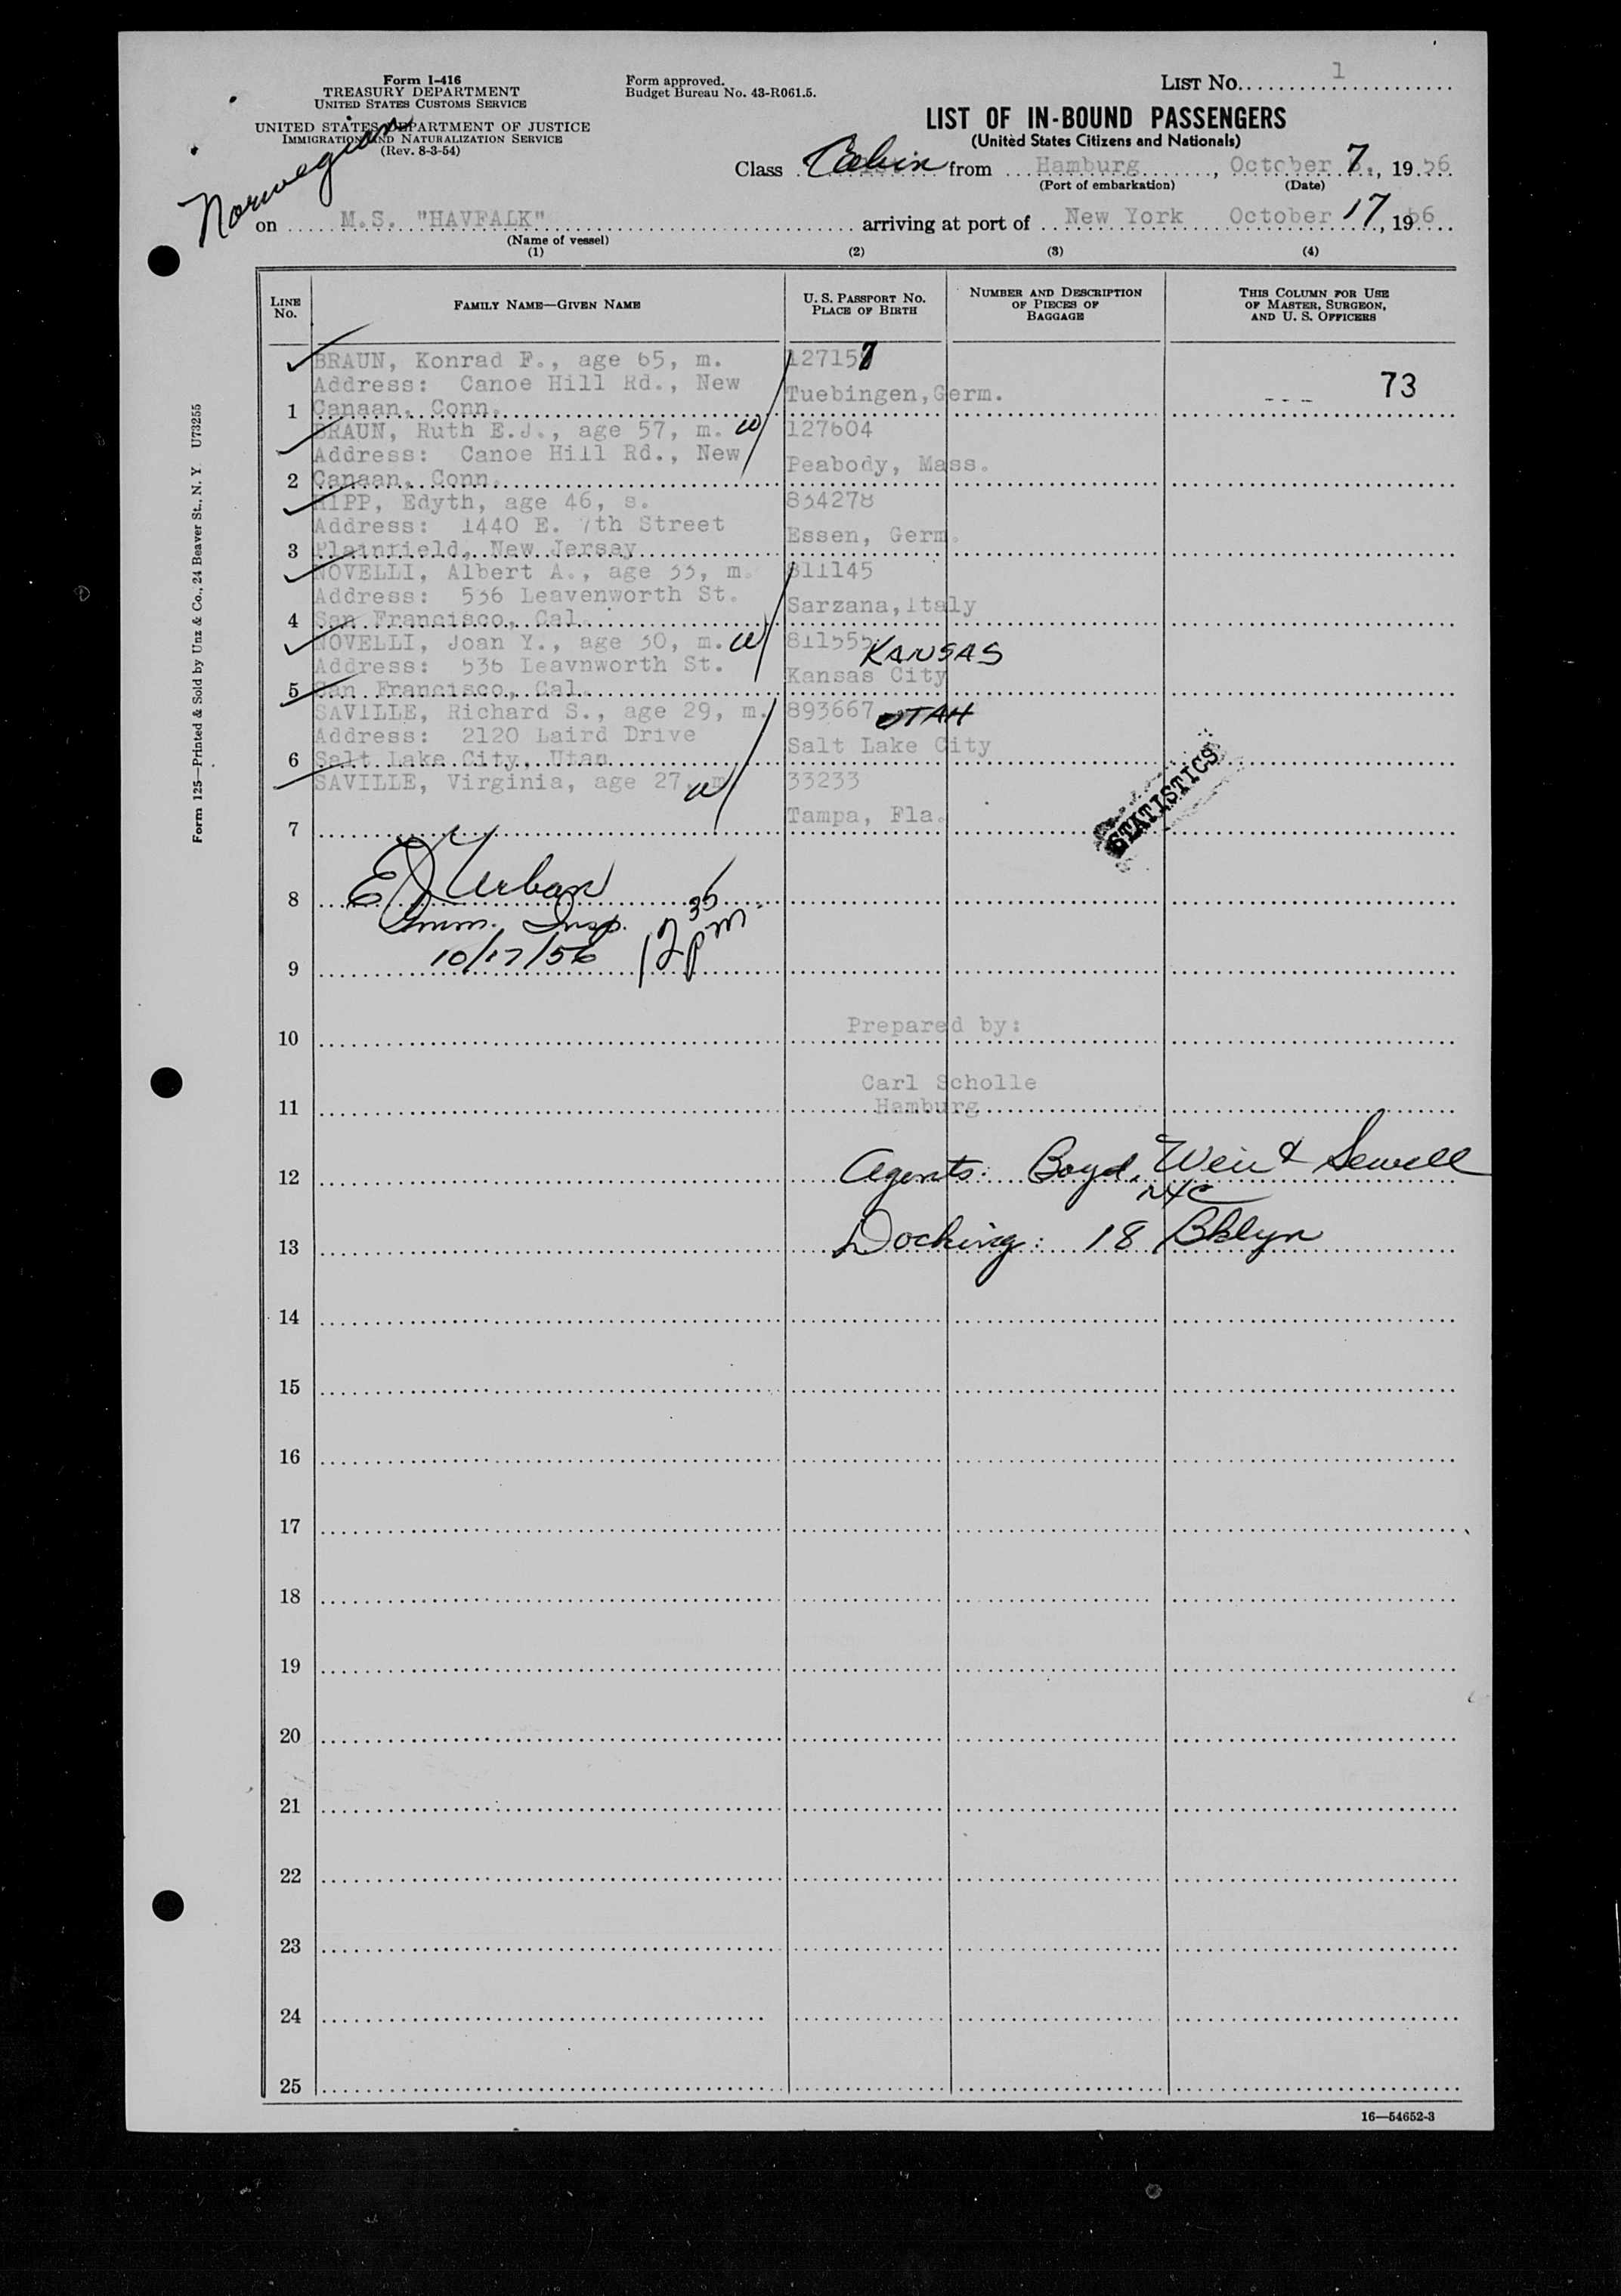 Form I-416
TREASURY DEPARTMENT
UNITED STATES CUSTOMS SERVICE
UNITED STATES DEPARTMENT OF JUSTICE
IMMIGRATION AND NATURALIZATION SERVICE
(Rev. 8-3-54)
Form approved.
Budget Bureau No. 43-R061.5.
LIST No. 1
LIST OF IN-BOUND PASSENGERS
(United States Citizens and Nationals)
Norwegian
Class Cabin from Hamburg, October 7, 1956
(Port of embarkation) (Date)
on M.S. "HAVFALK" arriving at port of New York October 17, 1956
(Name of vessel)
(1) (2) (3) (4)
LINE No. FAMILY NAME—GIVEN NAME U. S. PASSPORT No. PLACE OF BIRTH NUMBER AND DESCRIPTION OF PIECES OF BAGGAGE THIS COLUMN FOR USE OF MASTER, SURGEON, AND U. S. OFFICERS
BRAUN, Konrad F., age 65, m. 127157
Address: Canoe Hill Rd., New Tuebingen, Germ. --- 73
1 Canaan, Conn.
BRAUN, Ruth E.J., age 57, m. W 127604
Address: Canoe Hill Rd., New Peabody, Mass.
2 Canaan, Conn.
HIPP, Edyth, age 46, s. 834278
Address: 1440 E. 7th Street Essen, Germ.
3 Plainfield, New Jersey
NOVELLI, Albert A., age 33, m. 811145
Address: 536 Leavenworth St. Sarzana, Italy
4 San Francisco, Cal.
NOVELLI, Joan Y., age 30, m. W 811555 KANSAS
Address: 536 Leavnworth St. Kansas City
5 San Francisco, Cal.
SAVILLE, Richard S., age 29, m. 893667 UTAH
Address: 2120 Laird Drive Salt Lake City
6 Salt Lake City, Utah
SAVILLE, Virginia, age 27, m W 33233
7 Tampa, Fla.
STATISTICS
8 E J Urban
Imm. Insp.
9 10/17/56 12 35 pm
Prepared by:
10
Carl Scholle
11 Hamburg
12 Agents: Boyd, Weir & Sewell
NYC
13 Docking: 18 Bklyn
14
15
16
17
18
19
20
21
22
23
24
25
16—54652-3
Form 125—Printed & Sold by Unz & Co., 24 Beaver St., N. Y. U73255